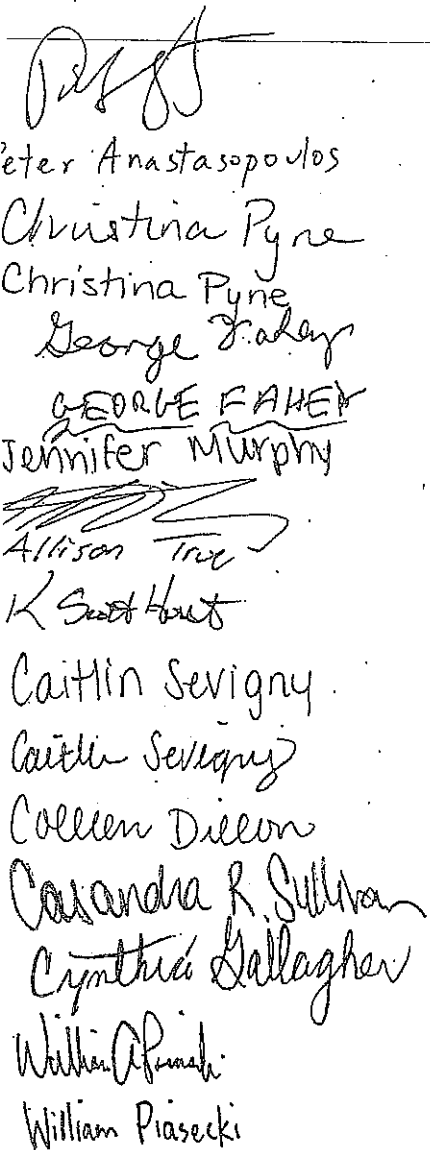 eter Anastasopoulos
Christina Pyne
Christina Pyne
George Fahey
GEORGE FAHEY
Jennifer Murphy
Allison True
K Scott
Caitlin Sevigny
Caitlin Sevigny
Colleen Dillon
Casandra R. Sullivan
Cynthia Gallagher
William A
William Piasecki